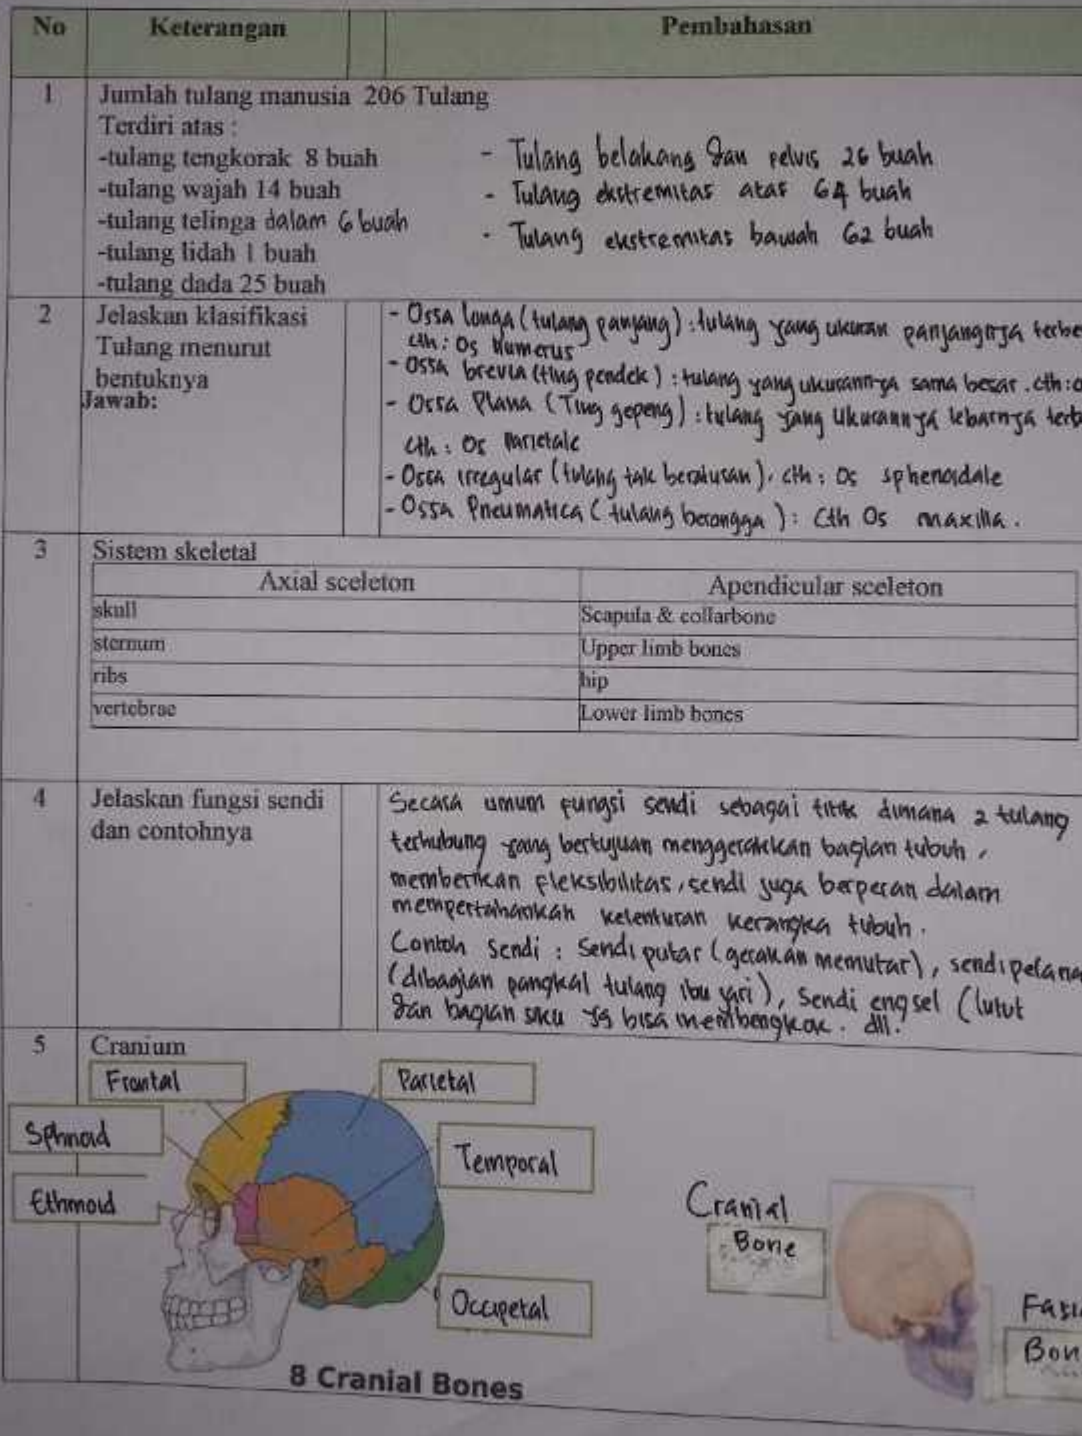 No Keterangan Pembahasan
1 Jumlah tulang manusia 206 Tulang
Terdiri atas :
-tulang tengkorak 8 buah
-tulang wajah 14 buah
-tulang telinga dalam 6 buah
-tulang lidah 1 buah
-tulang dada 25 buah
- Tulang belakang dan pelvis 26 buah
- Tulang ekstremitas atas 64 buah
- Tulang ekstremitas bawah 62 buah
2 Jelaskan klasifikasi
Tulang menurut
bentuknya
Jawab:
- Ossa longa (tulang panjang) : tulang yang ukuran panjangnya terbe
cth : Os Humerus
- Ossa brevia (tlng pendek) : tulang yang ukurannya sama besar . cth : o
- Ossa Plana (Tlng gepeng) : tulang yang ukurannya lebarnya terb
cth : Os Parietale
- Ossa irregular (tulang tak beraturan), cth : Os sphenoidale
- Ossa Pneumatica ( tulang berongga ) : cth Os maxilla .
3 Sistem skeletal
Axial sceleton Apendicular sceleton
skull Scapula & collarbone
sternum Upper limb bones
ribs hip
vertebrae Lower limb bones
4 Jelaskan fungsi sendi
dan contohnya
Secara umum fungsi sendi sebagai titik dimana 2 tulang
terhubung yang bertujuan menggerakkan bagian tubuh ,
memberikan fleksibilitas, sendi juga berperan dalam
mempertahankan kelenturan kerangka tubuh .
Contoh sendi : Sendi putar (gerakan memutar), sendi pelana
(dibagian pangkal tulang ibu jari), sendi engsel (lutut
dan bagian siku yg bisa membengkok . dll.
5 Cranium
Frontal
Parietal
Sphnoid
Temporal
Ethmoid
Cranial
Bone
Occupetal
Fasi
Bon
8 Cranial Bones